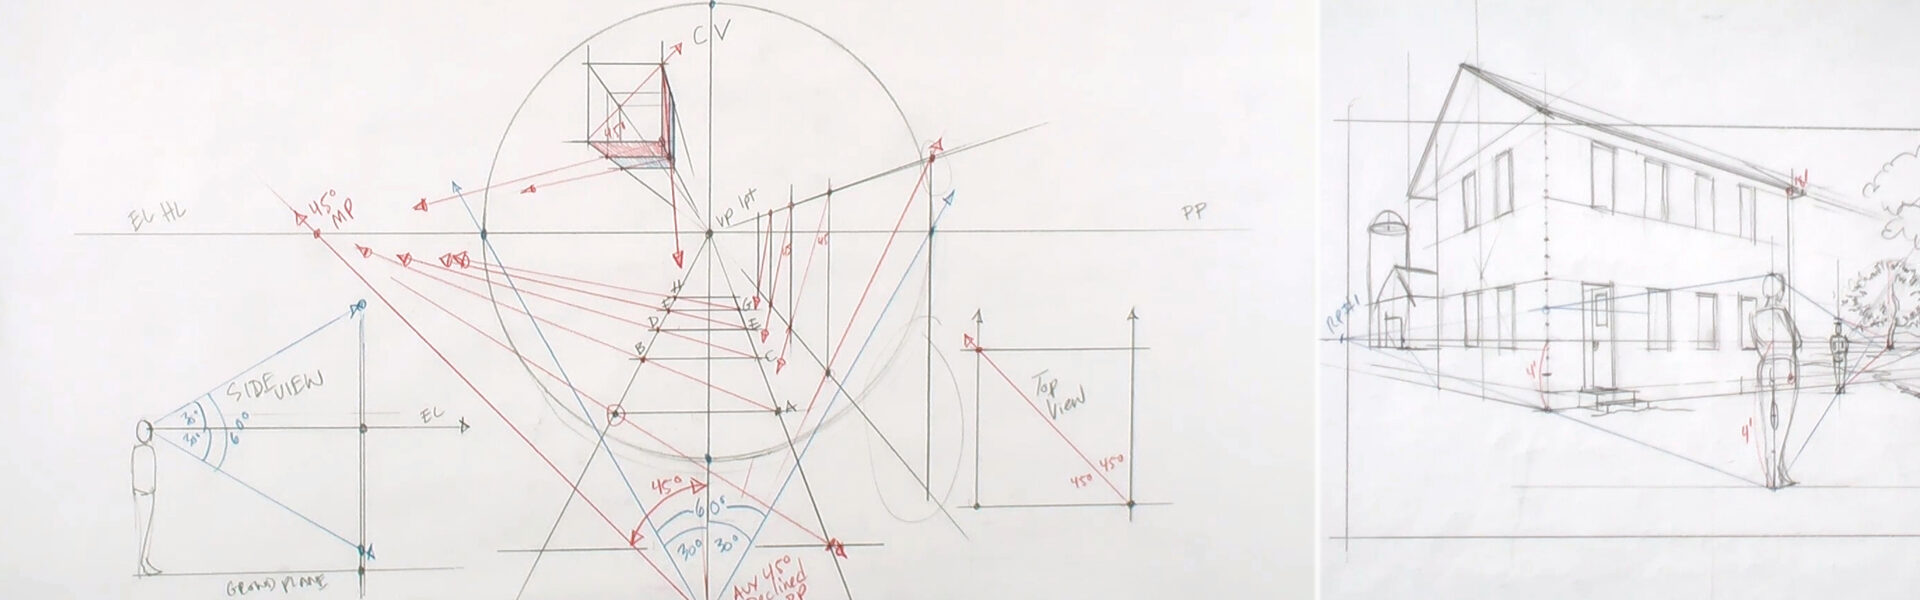 CV
EL HL
45°
MP
VP 1pt
PP
45°
45
45
H
F
G
D
E
B
C
A
SIDE VIEW
30°
30°
60°
EL
GROUND PLANE
45°
60°
30° 30°
Aux 45°
Declined
PP
Top
View
45°
45°
RP#1
4'
4'